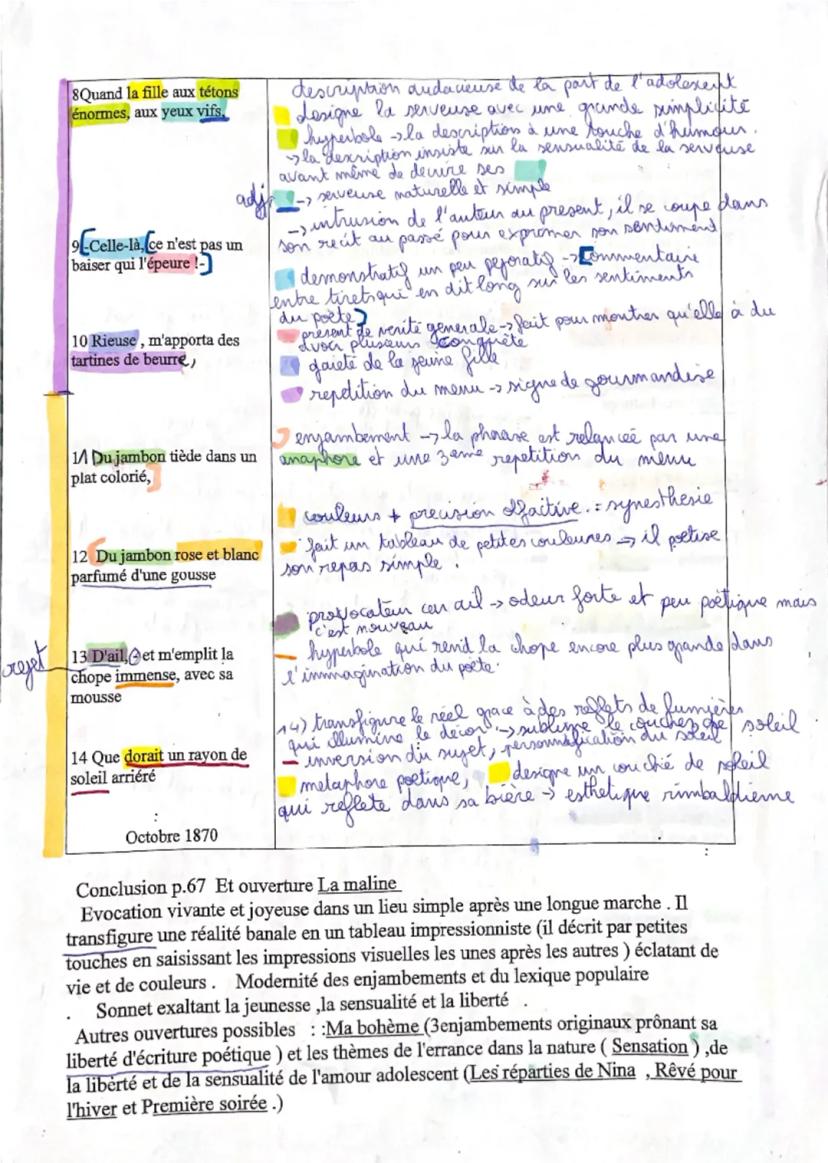 8Quand la fille aux tétons
énormes, aux yeux vifs,
description audacieuse de la part de l'adolescent
designe la serveuse avec une grande simplicité
hyperbole → la description à une touche d'humour.
→ la description insiste sur la sensualité de la serveuse
avant même de decrire ses
adj → serveuse naturelle et simple
9 -Celle-là, ce n'est pas un
baiser qui l'épeure !-
→ intrusion de l'auteur au present, il se coupe dans
son recit au passé pour exprimer son sentiment
demonstratif un peu pejoratif → [commentaire
entre tirets qui en dit long sur les sentiments
du poète]
10 Rieuse , m'apporta des
tartines de beurre,
présent de verité generale → fait pour montrer qu'elle à du
avoir plusieurs conquête
gaieté de la jeune fille
repetition du menu → signe de gourmandise
11 Du jambon tiède dans un
plat colorié,
enjambement → la phrase est relancée par une
anaphore et une 3eme repetition du menu
12 Du jambon rose et blanc
parfumé d'une gousse
couleurs + precision olfactive. = synesthesie
fait un tableau de petites couleures → il poetise
son repas simple .
rejet
13 D'ail, et m'emplit la
chope immense, avec sa
mousse
provocateur car ail → odeur forte et peu poëtique mais
c'est nouveau
hyperbole qui rend la chope encore plus grande dans
l'immagination du poète.
14 Que dorait un rayon de
soleil arriéré
14) transfigure le réel grace à des reflets de lumières
qui illumine le décor → sublime le coucher de soleil
inversion du sujet, personnification du soleil
metaphore poetique, designe un couché de soleil
qui reflete dans sa bière → esthetique rimbaldienne
:
Octobre 1870
:
Conclusion p.67 Et ouverture La maline
Evocation vivante et joyeuse dans un lieu simple après une longue marche . Il
transfigure une réalité banale en un tableau impressionniste (il décrit par petites
touches en saisissant les impressions visuelles les unes après les autres ) éclatant de
vie et de couleurs . Modernité des enjambements et du lexique populaire
. Sonnet exaltant la jeunesse ,la sensualité et la liberté .
Autres ouvertures possibles : :Ma bohème (3enjambements originaux prônant sa
liberté d'écriture poétique ) et les thèmes de l'errance dans la nature ( Sensation ) ,de
la liberté et de la sensualité de l'amour adolescent (Les réparties de Nina , Rêvé pour
l'hiver et Première soirée .)